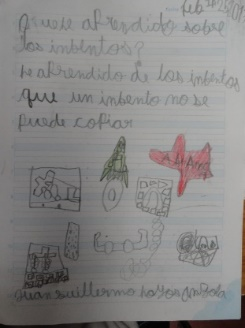 feb
que e aprendido sobre
los inbentos?
he aprendido de los inbentos
que un inbento no se
puede cofiar
Juan guillermo